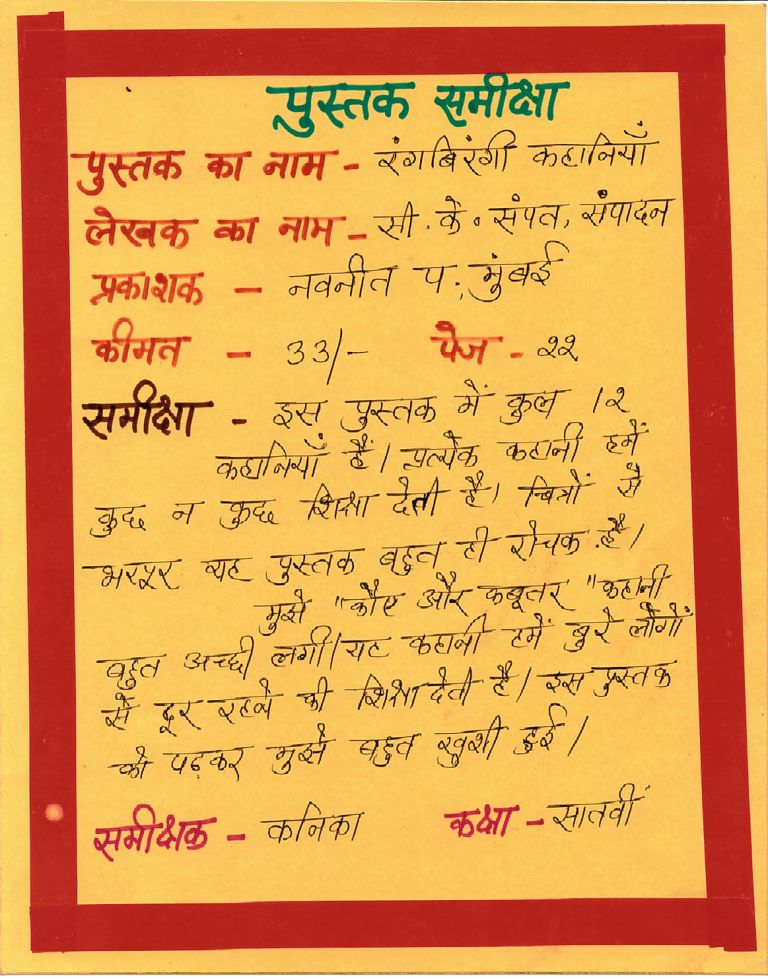 पुस्तक समीक्षा
पुस्तक का नाम - रंगबिरंगी कहानियाँ
लेखक का नाम - सी. के. संपत, संपादन
प्रकाशक - नवनीत प. मुंबई
कीमत - 33/- पेज - २२
समीक्षा - इस पुस्तक में कुल १२
कहानियाँ हैं। प्रत्येक कहानी हमें
कुछ न कुछ शिक्षा देती है। चित्रों से
भरपूर यह पुस्तक बहुत ही रोचक है।
मुझे "कौए और कबूतर" कहानी
बहुत अच्छी लगी। यह कहानी हमें बुरे लोगों
से दूर रहने की शिक्षा देती है। इस पुस्तक
को पढ़कर मुझे बहुत खुशी हुई।
समीक्षक - कनिका कक्षा - सातवीं